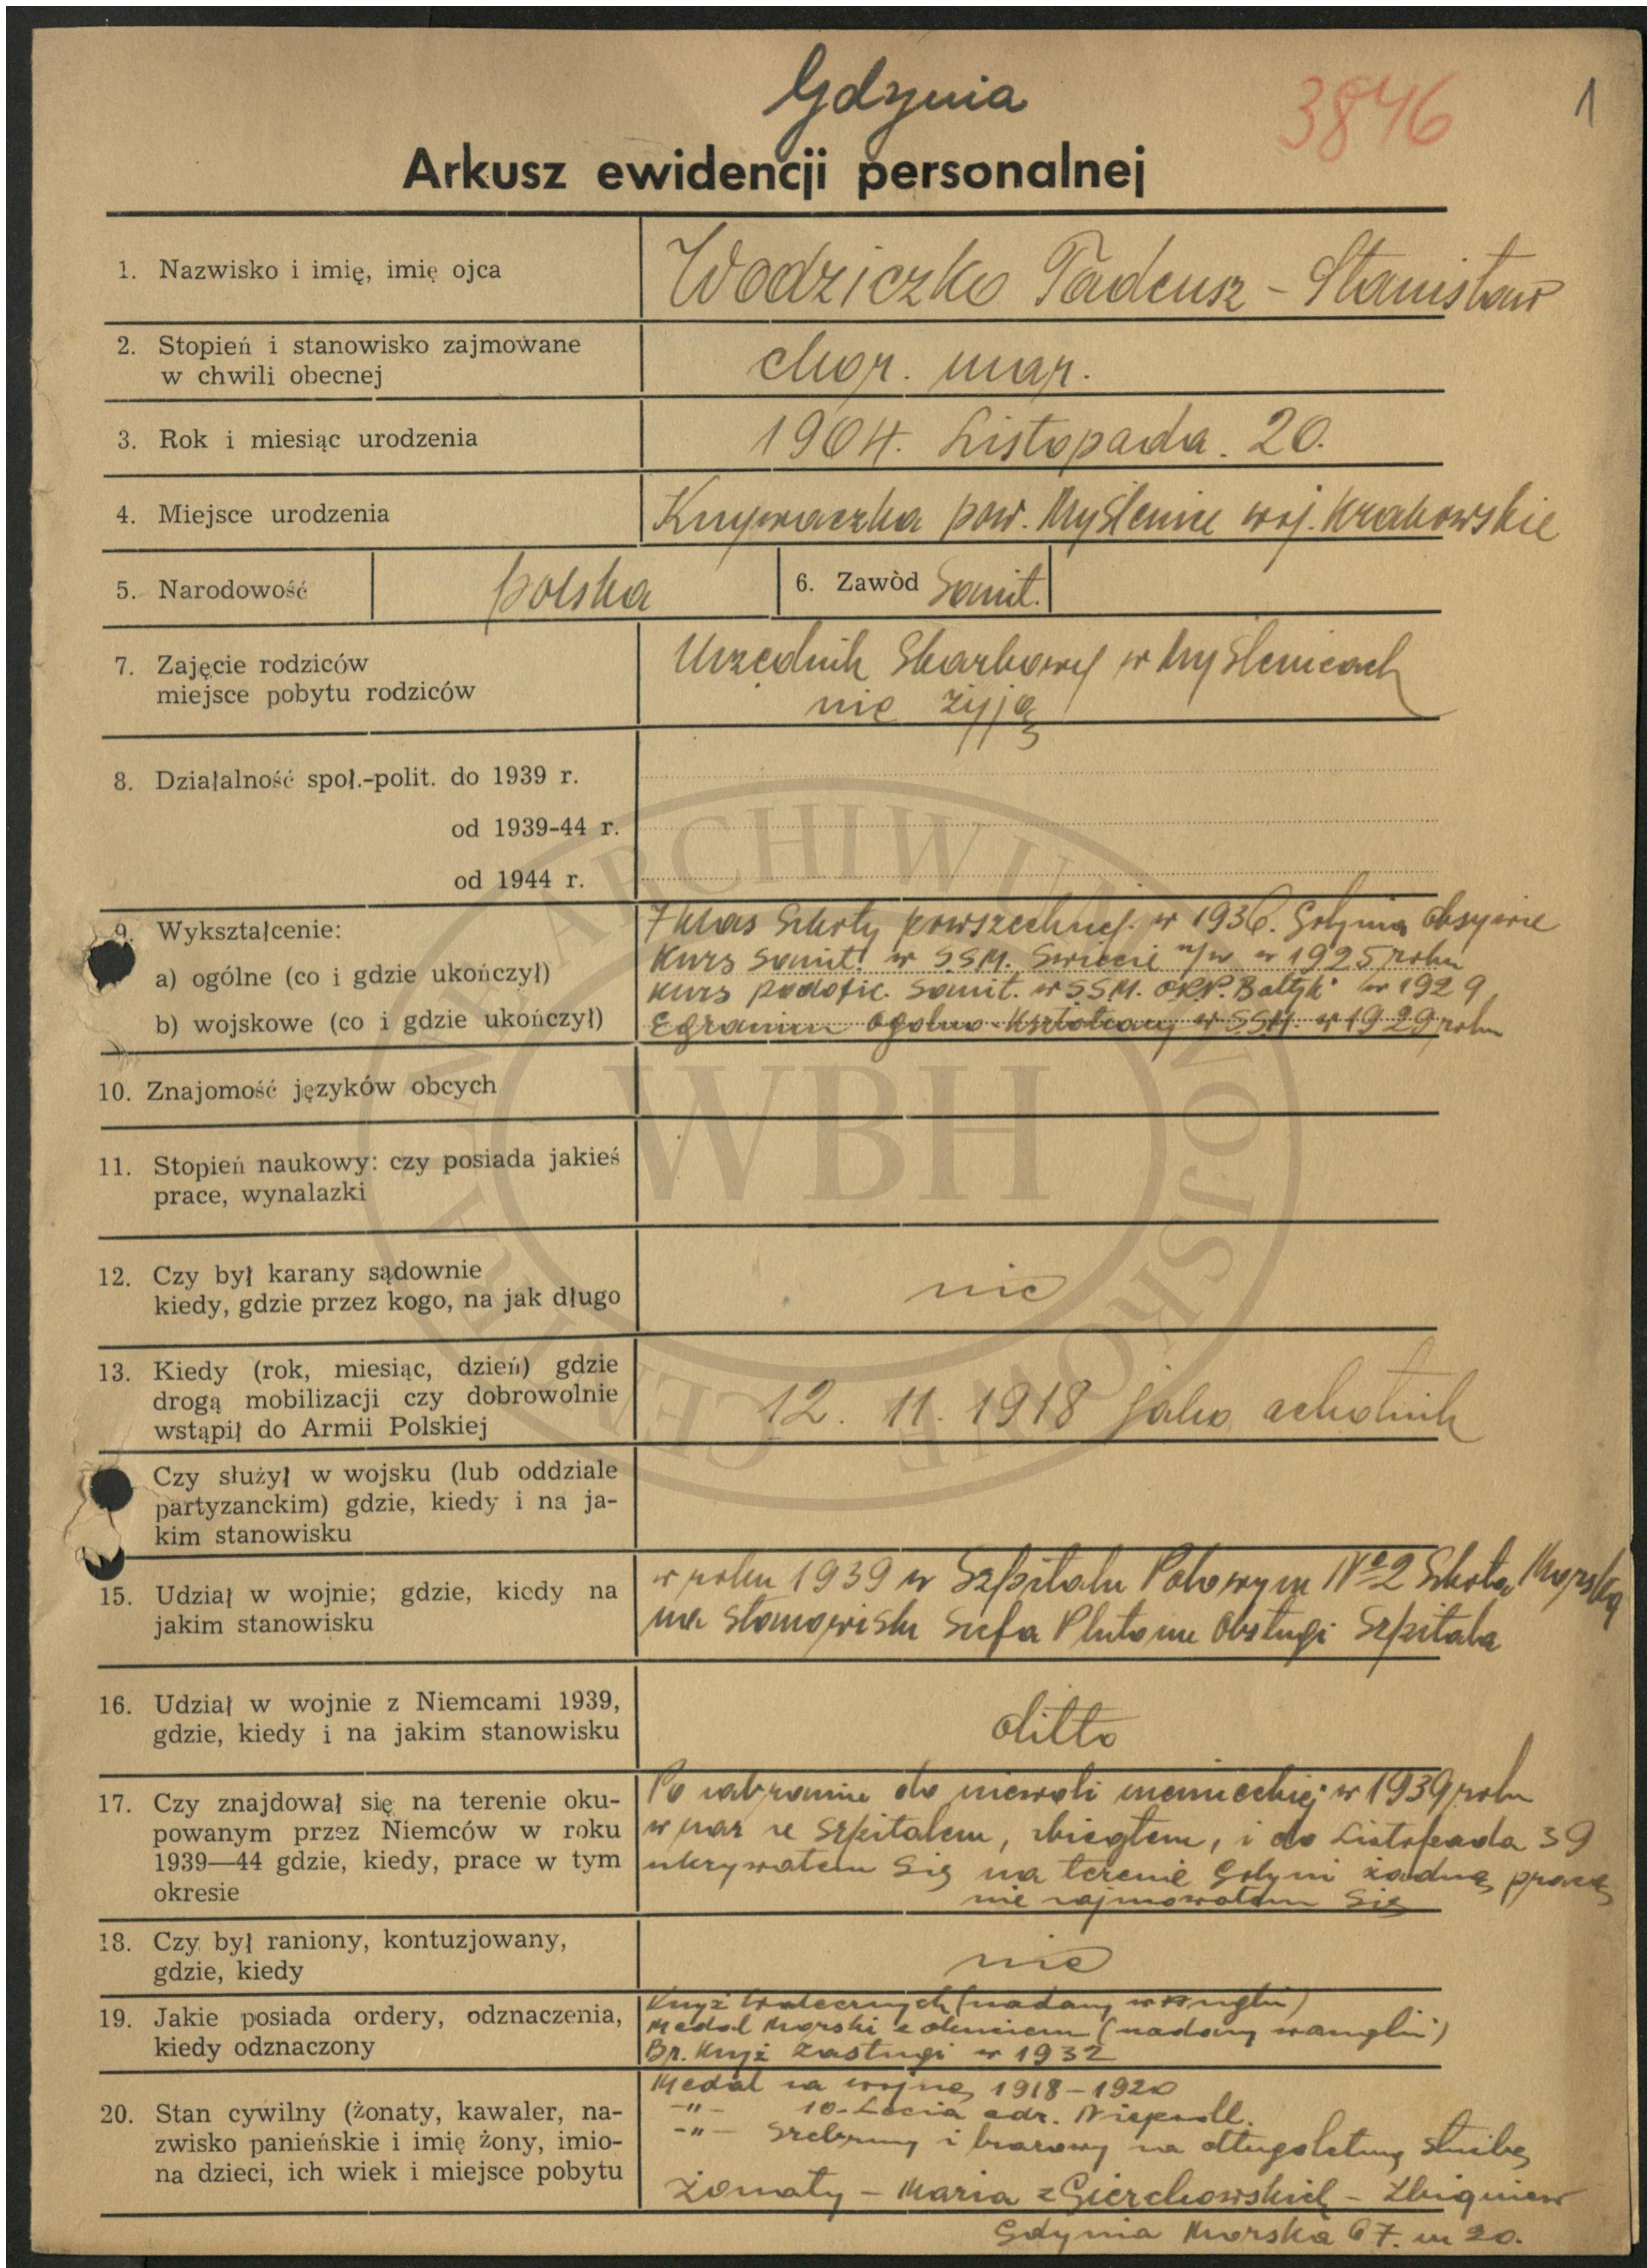 Gdynia
3846
1
Arkusz ewidencji personalnej
1. Nazwisko i imię, imię ojca
Wodziczko Tadeusz - Stanisław
2. Stopień i stanowisko zajmowane
w chwili obecnej
chor. mar.
3. Rok i miesiąc urodzenia
1904. Listopada. 20.
4. Miejsce urodzenia
pow. Myślenice woj. Krakowskie
5. Narodowość polska 6. Zawòd Sanit.
7. Zajęcie rodziców
miejsce pobytu rodziców
Urzędnik Skarbowy w Myślenicach
nie żyją
8. Działalność społ.-polit. do 1939 r.
od 1939-44 r.
od 1944 r.
9. Wykształcenie:
a) ogólne (co i gdzie ukończył)
b) wojskowe (co i gdzie ukończył)
7 klas Szkoły powszechnej. w 1936. Gdynia Oksywie
Kurs Sanit. w S.S.M. Świecie n/w w 1925 roku
Kurs podofic. Sanit. w S.S.M. O.R.P. Bałtyk w 1929
Egzamin ogólno-kształcący w SSM. w 1929 roku
10. Znajomość języków obcych
11. Stopień naukowy: czy posiada jakieś
prace, wynalazki
12. Czy był karany sądownie
kiedy, gdzie przez kogo, na jak długo
nie
13. Kiedy (rok, miesiąc, dzień) gdzie
drogą mobilizacji czy dobrowolnie
wstąpił do Armii Polskiej
12. 11. 1918 jako ochotnik
Czy służył w wojsku (lub oddziale
partyzanckim) gdzie, kiedy i na ja-
kim stanowisku
15. Udział w wojnie; gdzie, kiedy na
jakim stanowisku
w roku 1939 w Szpitalu Polowym No 2 Szkoła Morska
na stanowisku Szefa Plutonu Obsługi Szpitala
16. Udział w wojnie z Niemcami 1939,
gdzie, kiedy i na jakim stanowisku
ditto
17. Czy znajdował się na terenie oku-
powanym przez Niemców w roku
1939—44 gdzie, kiedy, prace w tym
okresie
Po zabraniu do niewoli niemieckiej w 1939 roku
wraz ze szpitalem, zbiegłem, i do Listopada 39
ukrywałem się na terenie Gdyni żadną pracą
nie zajmowałem się
18. Czy był raniony, kontuzjowany,
gdzie, kiedy
nie
19. Jakie posiada ordery, odznaczenia,
kiedy odznaczony
Krzyż Walecznych (nadany w Anglii)
Medal Morski z okuciem (nadany w anglii)
Br. Krzyż Zasługi w 1932
Medal za wojnę 1918-1920
-"- 10-Lecia odz. Niepodl.
-"- Srebrny i brązowy za długoletnią służbę
20. Stan cywilny (żonaty, kawaler, na-
zwisko panieńskie i imię żony, imio-
na dzieci, ich wiek i miejsce pobytu
żonaty - Maria z Gierchowskich - Zbigniew
Gdynia Morska 67. m 20.
CENTRALNE ARCHIWUM WOJSKOWE
WBH